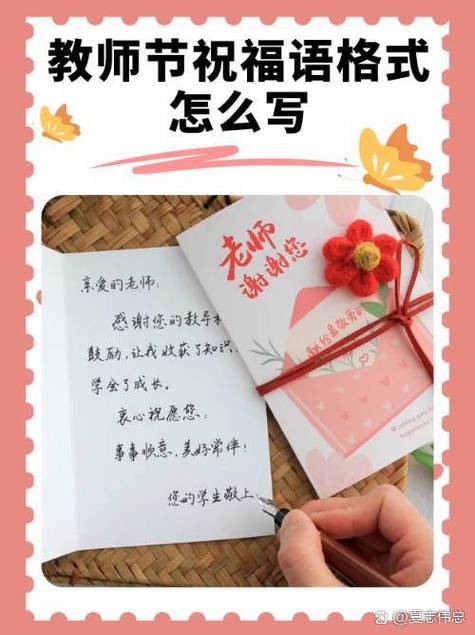 教师节祝福语格式
怎么写
老师
谢谢您
亲爱的老师：
感谢您的教导和
鼓励，让我收获了知识，
学会了成长。
衷心祝愿您：
事事顺意，美好常伴！
您的学生敬上
Wishing you
happiness
@夏志伟总